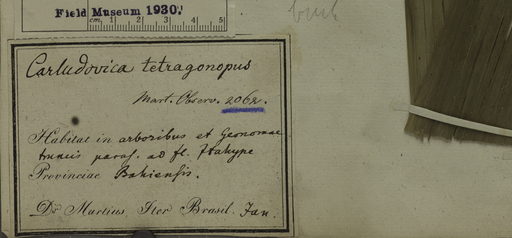 Field Museum 1930
cm. 1 2 3 4 5
Carludovica tetragonopus
Mart. Observ. 2062.
Habitat in arboribus et Geonomae
truncis paras. ad fl. Itahype
Provinciae Bahiensis.
Dr. Martius Iter Brasil. Jan.